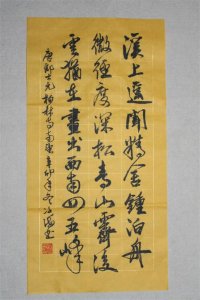 溪上遥聞精舍鐘泊舟
微徑度深松青山霽後
雲猶在畫出西南四五峰
唐郎士元柏林寺南望辛卯年冬书